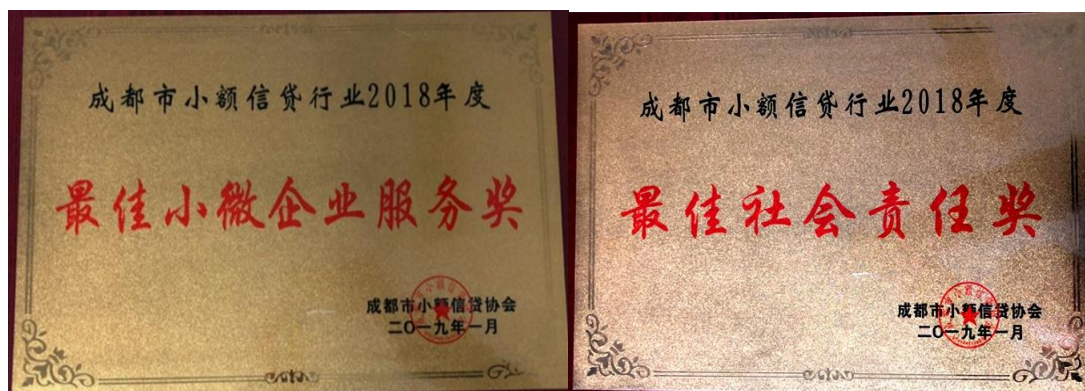 成都市小额信贷行业2018年度
最佳小微企业服务奖
成都市小额信贷协会
二〇一九年一月
成都市小额信贷行业2018年度
最佳社会责任奖
成都市小额信贷协会
二〇一九年一月